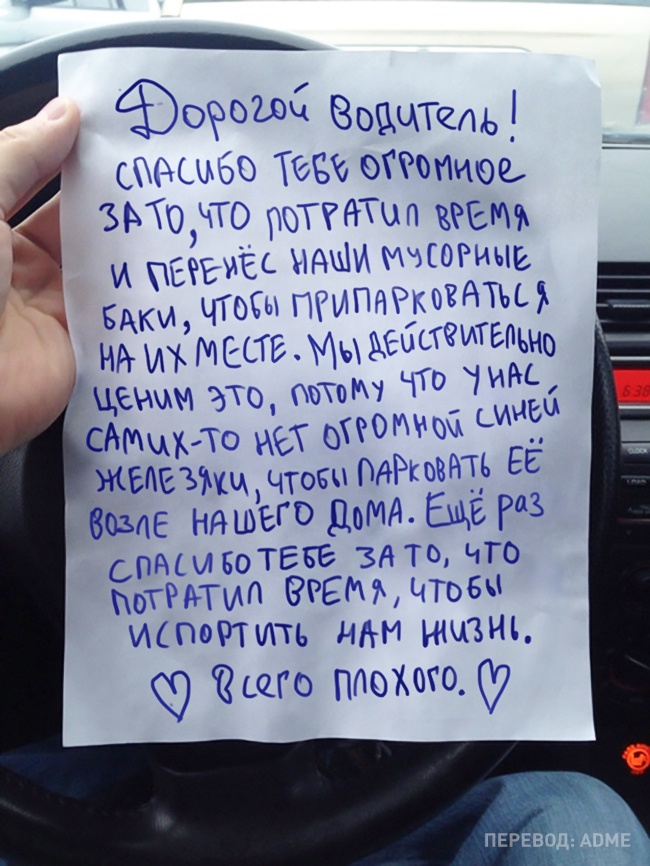 Дорогой водитель!
СПАСИБО ТЕБЕ ОГРОМНОЕ
ЗА ТО, ЧТО ПОТРАТИЛ ВРЕМЯ
И ПЕРЕНЁС НАШИ МУСОРНЫЕ
БАКИ, ЧТОБЫ ПРИПАРКОВАТЬСЯ
НА ИХ МЕСТЕ. МЫ ДЕЙСТВИТЕЛЬНО
ЦЕНИМ ЭТО, ПОТОМУ ЧТО У НАС
САМИХ-ТО НЕТ ОГРОМНОЙ СИНЕЙ
ЖЕЛЕЗЯКИ, ЧТОБЫ ПАРКОВАТЬ ЕЁ
ВОЗЛЕ НАШЕГО ДОМА. ЕЩЁ РАЗ
СПАСИБО ТЕБЕ ЗА ТО, ЧТО
ПОТРАТИЛ ВРЕМЯ, ЧТОБЫ
ИСПОРТИТЬ НАМ ЖИЗНЬ.
♡ Всего плохого. ♡
6:38
CLOCK
LOAD
ПЕРЕВОД: ADME